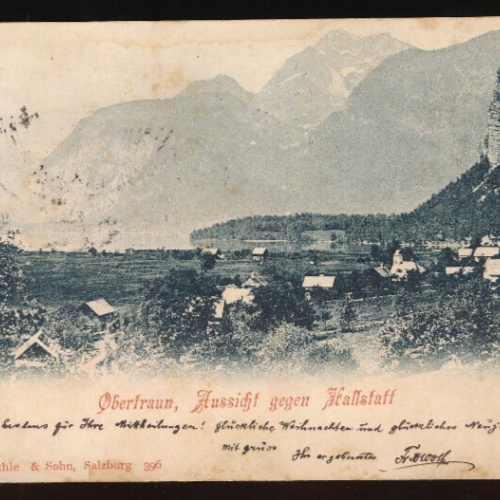 Obertraun, Aussicht gegen Hallstatt
bestens für Ihre Mittheilungen! Glückliche Weihnachten und glückliches Neuj
mit gruss
Ihr ergebenster
hle & Sohn, Salzburg 396